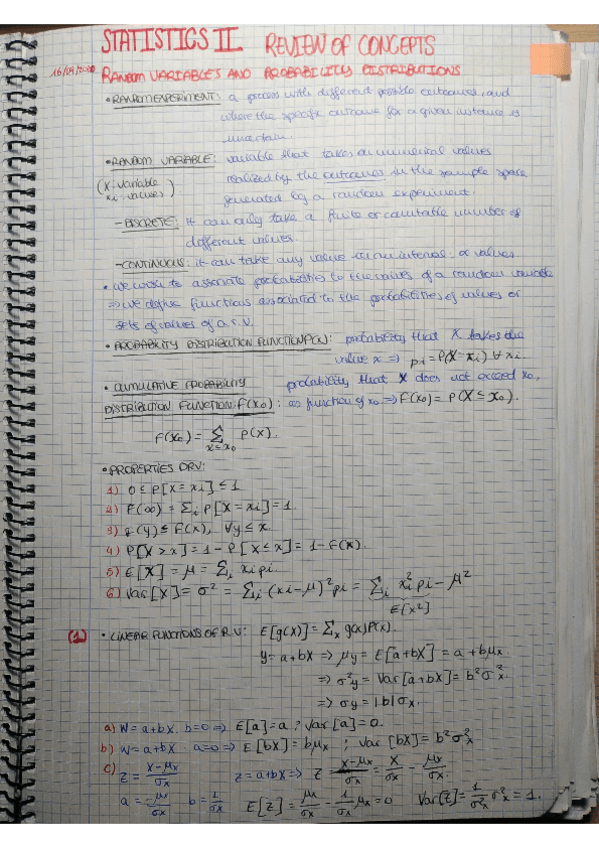 STATISTICS II. REVIEW OF CONCEPTS
RANDOM VARIABLES AND PROBABILITY DISTRIBUTIONS
• RANDOM EXPERIMENT: a process with different possible outcomes, and
where the specific outcome for a given instance is
uncertain.
• RANDOM VARIABLE: variable that takes on numerical values
(X: variable realized by the outcomes in the sample space
xi: values) generated by a random experiment.
- DISCRETE: it can only take a finite or countable number of
different values.
- CONTINUOUS: it can take any value in an interval of values.
• we wish to associate probabilities to the values of a random variable
⇒ we define functions associated to the probabilities of values or
sets of values of a r.v.
• PROBABILITY DISTRIBUTION FUNCTION P(X): probability that X takes the
value x ⇒ pi = P(X = xi) ∀ xi.
• CUMULATIVE PROBABILITY probability that X does not exceed x0,
DISTRIBUTION FUNCTION: F(x0): as function of x0 ⇒ F(x0) = P(X ≤ x0).
F(x0) = Σ x≤x0 P(X).
• PROPERTIES DRV:
1) 0 ≤ P[X = xi] ≤ 1
2) F(∞) = Σi P[X = xi] = 1.
3) F(y) ≤ F(x), ∀y ≤ x.
4) P[X > x] = 1 - P[X ≤ x] = 1 - F(x).
5) E[X] = μ = Σi xi pi.
6) Var[X] = σ² = Σi (xi - μ)² pi = Σi xi² pi - μ²
E[X²]
(1) • LINEAR FUNCTIONS OF R.V: E[g(X)] = Σx g(x)P(x).
Y = a + bX ⇒ μy = E[a + bX] = a + bμx
⇒ σ²y = Var[a + bX] = b²σ²x.
⇒ σy = |b|σx.
a) W = a + bX. b = 0 ⇒ E[a] = a ; Var[a] = 0.
b) W = a + bX. a = 0 ⇒ E[bX] = bμx ; Var[bX] = b²σ²x
c) Z = X - μx / σx Z = a + bX ⇒ Z = X - μx / σx = X / σx - μx / σx.
a = -μx / σx b = 1 / σx E[Z] = μx / σx - 1 / σx μx = 0 Var[Z] = 1 / σ²x σ²x = 1.